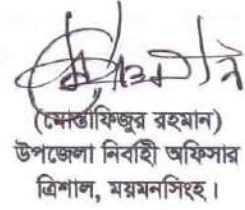 (মোস্তাফিজুর রহমান)
উপজেলা নির্বাহী অফিসার
ত্রিশাল, ময়মনসিংহ।